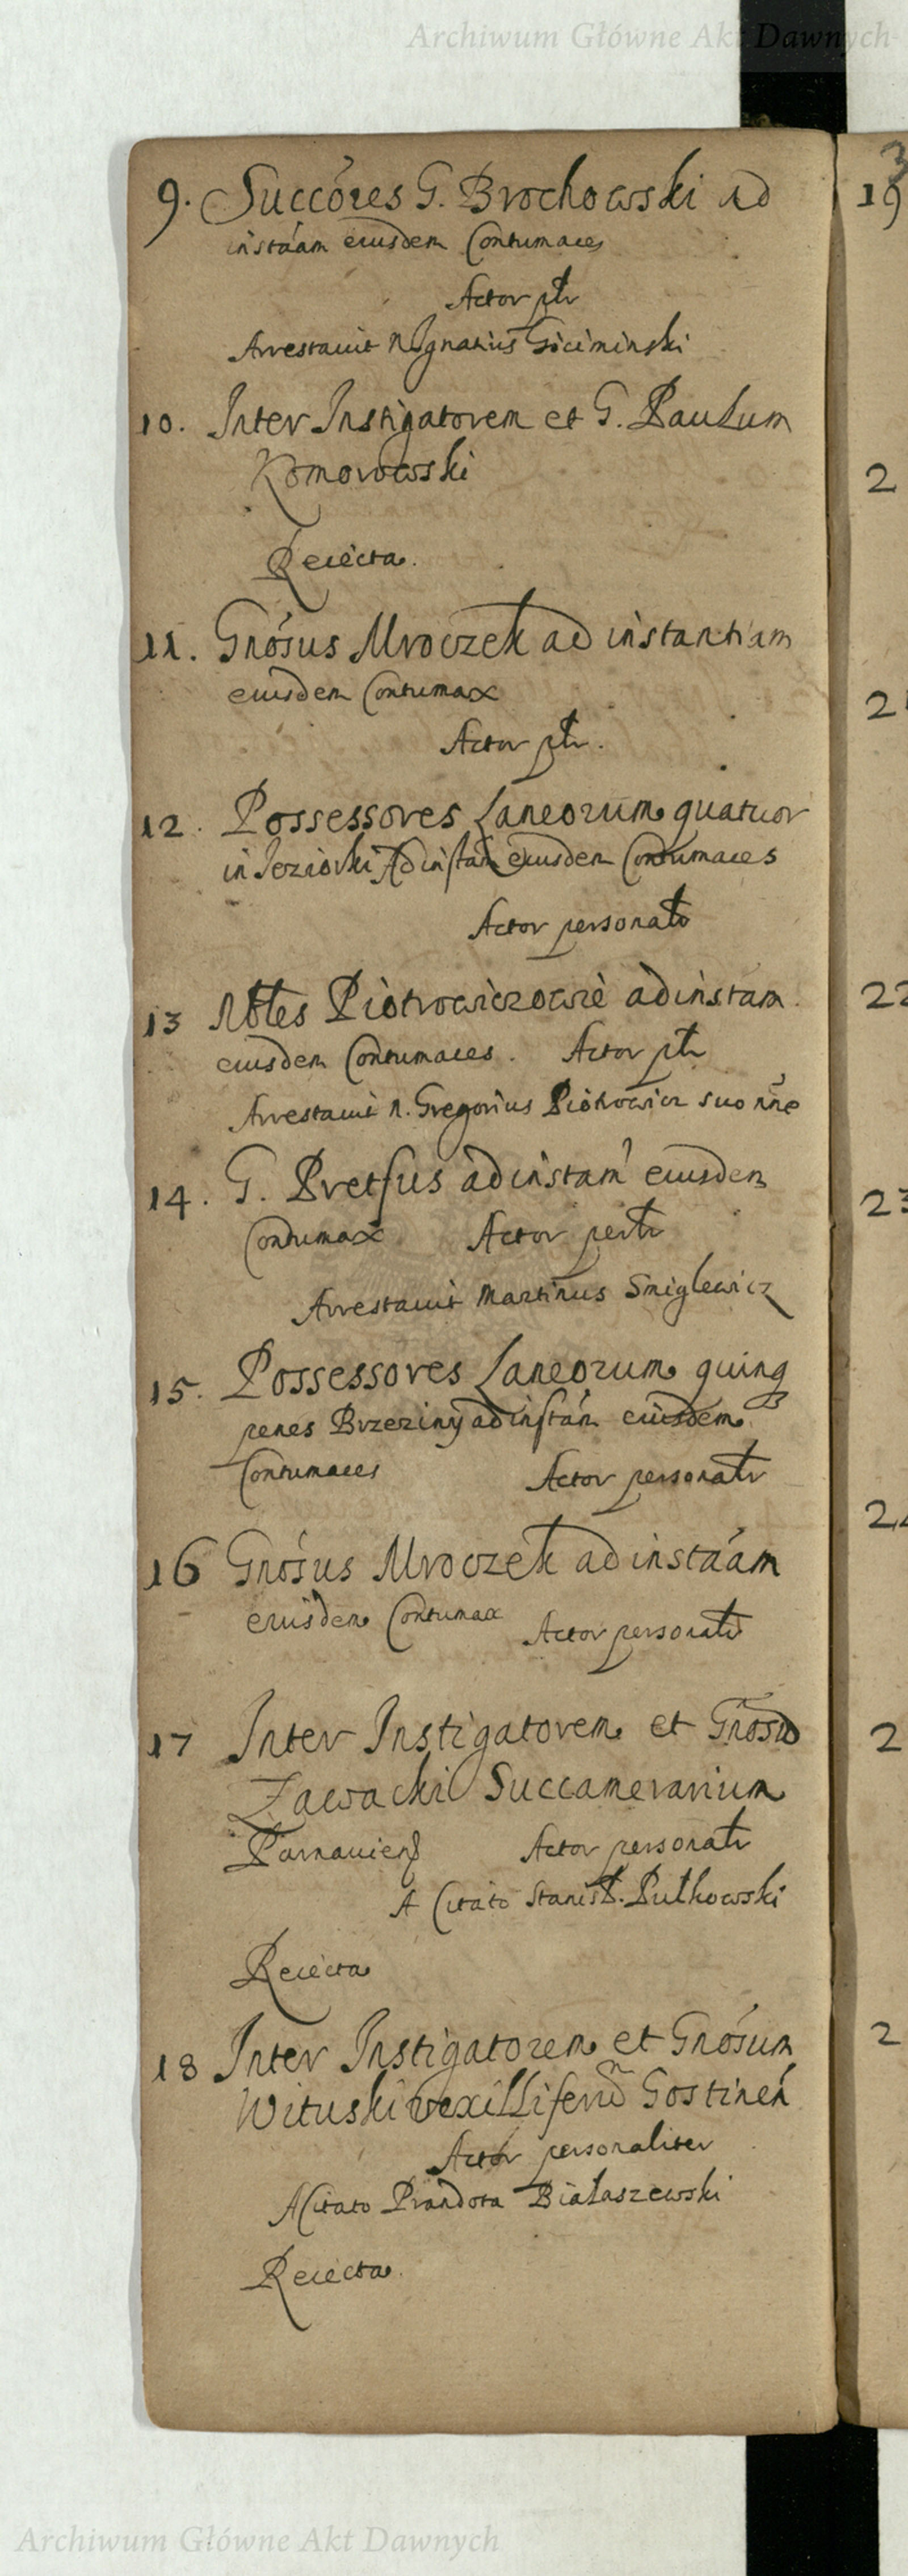 Archiwum Główne Akt Dawnych
9. Succóres G. Brochowski ad
instáam eiusdem Contumaces
Actor ptr
Arrestauit N Ignatius Giciminski
10. Inter Instigatorem et G. Paulum
Komorowski
Reiecta.
11. Gnósus Mroczek ad instantiam
eiusdem Contumax
Actor ptr.
12. Possessores Laneorum quatuor
in Jeziorki Ad instam eiusdem Contumaces
Actor personalr
13 Nbles Piotrowiczowie ad instam
eiusdem Contumaces. Actor ptr
Arrestauit n. Gregorius Piotrowicz suo nne
14. G. Pretfus ad instam eiusdem
Contumax Actor perlr
Arrestauit Martinus Smiglewicz
15. Possessores Laneorum quinq
penes Brzeziny ad instán eiusdem
Contumaces Actor personalr
16 Gnósus Mroczek ad instáam
eiusdem Contumax Actor personalr
17 Inter Instigatorem et Gnosu
Zawacki Succamerarium
Parnauiens Actor personalr
A Citato Stanisl. Pułkowski
Reiecta
18 Inter Instigatorem et Gnósum
Wituski vexilliferu Gostinen
Actor personaliter
A Citato Prandota Białaszewski
Reiecta.
19
2
2
22
23
2
2
2
Archiwum Główne Akt Dawnych